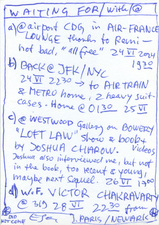 WAITING FOR/With/@
a) @airport CDG in AIR-FRANCE
LOUNGE thanks to Remi-
not bad, "all free" 24 VI 2014
1930
b) BACK @ JFK/NYC
24 VI 2230 → to AIR TRAIN
& METRO home, 2 heavy suit-
cases. Home @ 0130 25 VI
c) @ WESTWOOD Gallery on BOWERY
"LOFT LAW" show & book
by JOSHUA CHARON. Videos
Joshua also interviewed me, but not
in the book, too recent & young,
maybe next sequel. 26 VI 1900
d) W.F. VICTOR CHAKRAVARTY
@ 319 28 VI 2230 AM
OLD
NOT GONE
PARIS/NEWARK